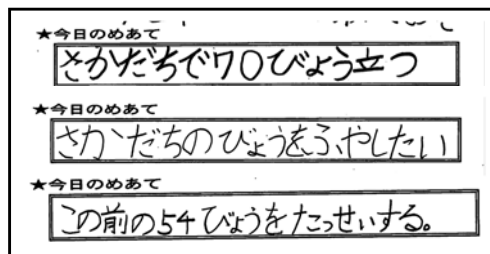 ★今日のめあて
さかだちで70びょう立つ
★今日のめあて
さかだちのびょうをふやしたい
★今日のめあて
この前の54びょうをたっせいする。